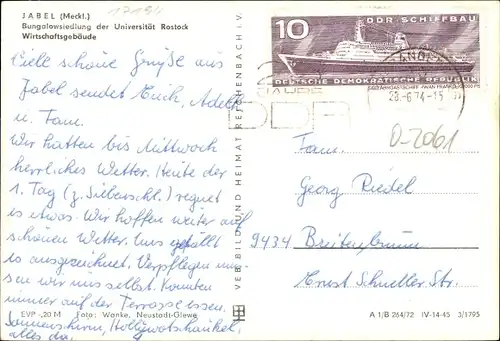 JABEL (Meckl.)
Bungalowsiedlung der Universität Rostock
Wirtschaftsgebäude
Viele schöne Grüße aus
Jabel sendet Euch,
u. Fam.
Wir hatten bis Mittwoch
herrliches Wetter. Heute der
1. Tag (z. Siebenschl.) regnet
es etwas. Wir hoffen weiter auf
schönes Wetter. Uns gefällt
es ausgezeichnet. Verpflegen müs-
sen wir uns selbst. Konnten
immer auf der Terrasse essen.
Sonnenschirm, Hollywoodschaukel,
alles da.
EVP -,20 M Foto: Wanke, Neustadt-Glewe
VEB BILD UND HEIMAT REICHENBACH i. V.
10 DDR SCHIFFBAU
DEUTSCHE DEMOKRATISCHE REPUBLIK
DDR
28.-6.74-15
D-2061
Fam.
Georg Riedel
9434 Breitenbrunn
Ernst Schneller Str.
A 1/B 264/72 IV-14-45 3/1795